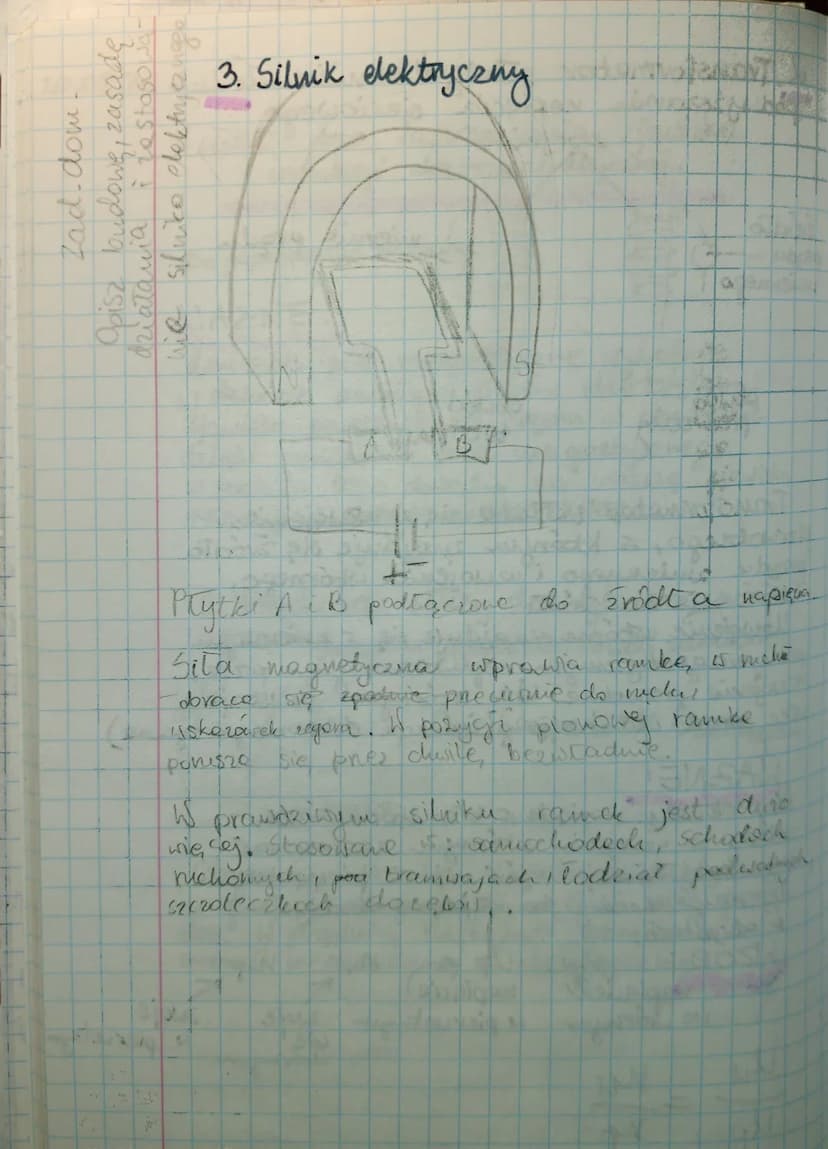 3. Silnik elektryczny
zad. dom.
Opisz budowę, zasadę
działania i zastosowa-
nie silnika elektrycznego
N
S
A
B
+ -
Płytki A i B podłączone do źródła napięcia.
Siła magnetyczna wprawia ramkę w ruch
obraca się przeciwnie do ruchu
wskazówek zegara. W pozycji pionowej ramka
porusza się przez chwilę bezwładnie.
W prawdziwym silniku ramek jest dużo
więcej. Stosowane w: samochodach, schodach
ruchomych, tramwajach, łodziach podwodnych
szczoteczkach do zębów.